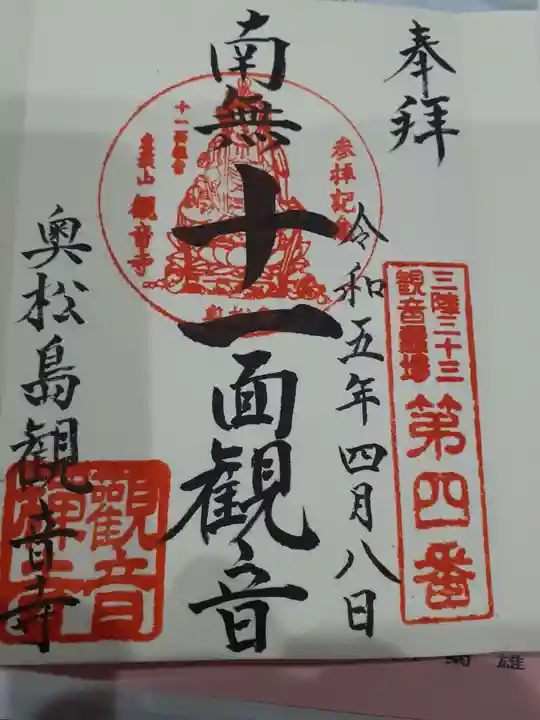 奉拝
三陸三十三
観音霊場
第四番
令和五年四月八日
参拝記念
南無十一面観音
十一面観音
観音寺
奥松島観音寺
觀音
禅寺
雄